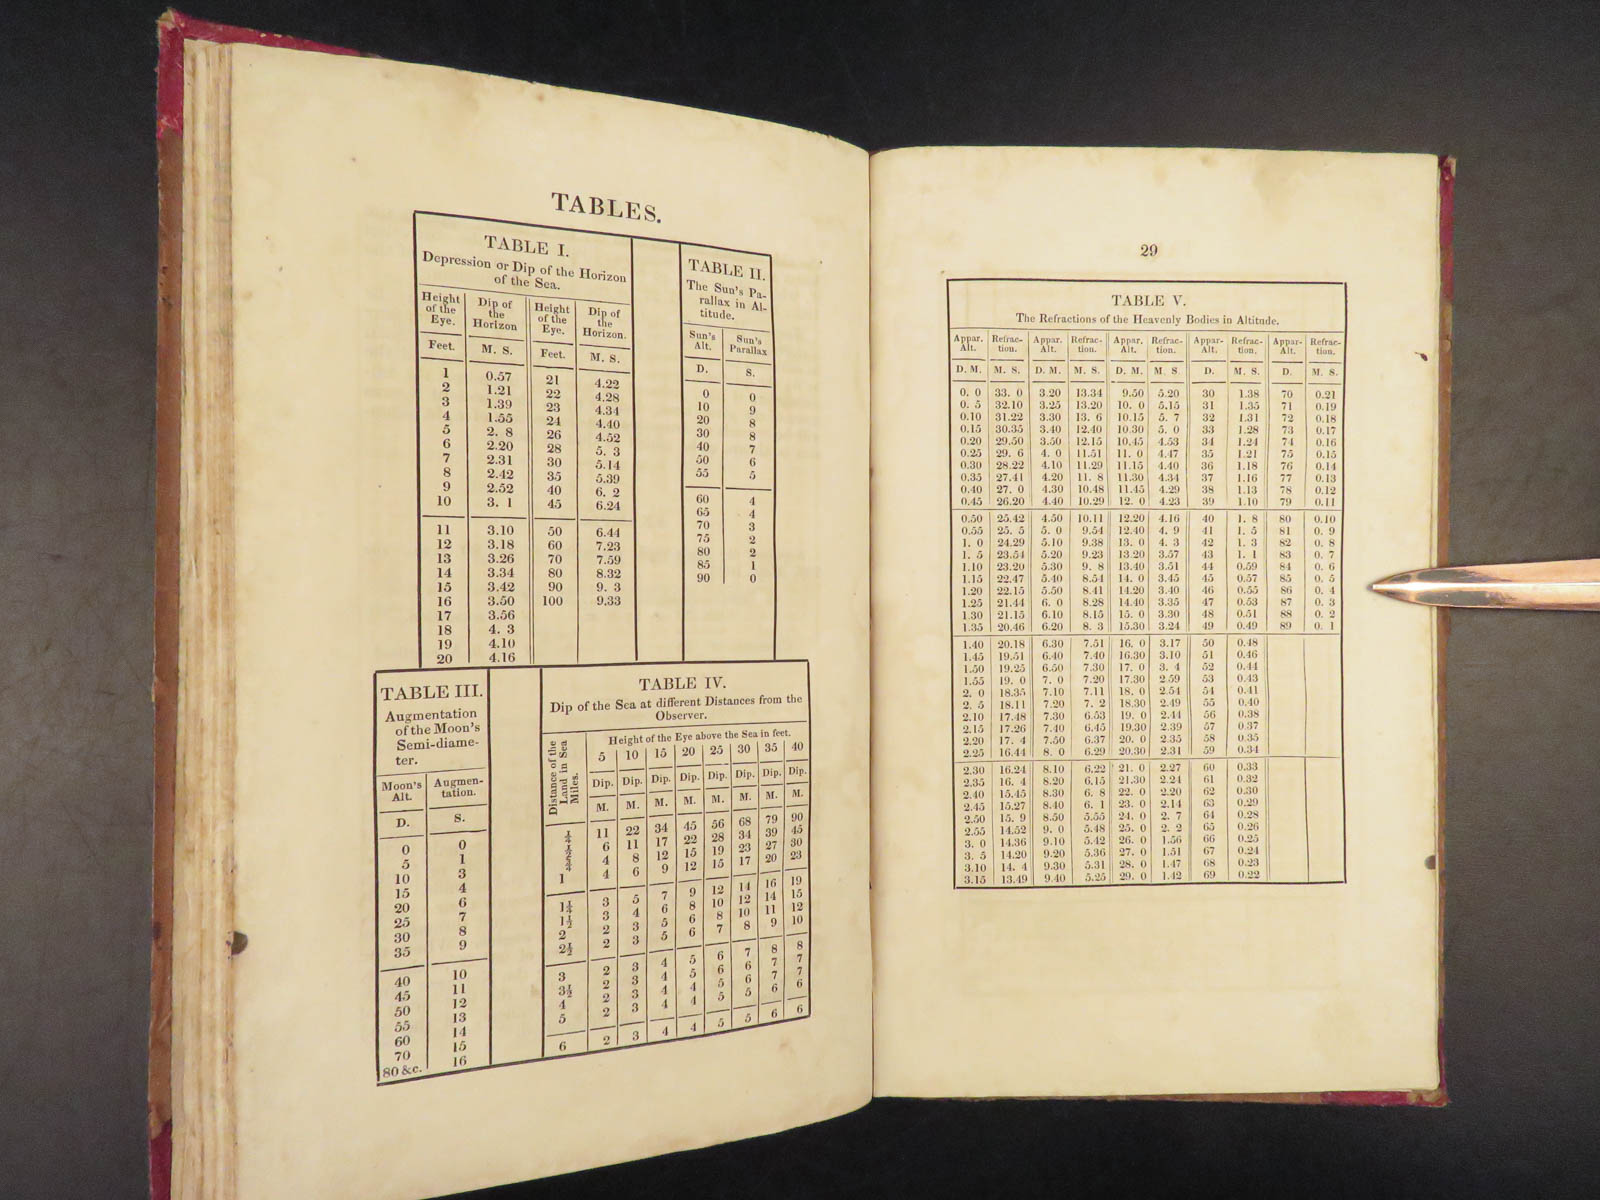 TABLES.
TABLE I.
Depression or Dip of the Horizon
of the Sea.
Height of the Eye. Dip of the Horizon Height of the Eye. Dip of the Horizon.
Feet. M. S. Feet. M. S.
1 0.57 21 4.22
2 1.21 22 4.28
3 1.39 23 4.34
4 1.55 24 4.40
5 2. 8 26 4.52
6 2.20 28 5. 3
7 2.31 30 5.14
8 2.42 35 5.39
9 2.52 40 6. 2
10 3. 1 45 6.24
11 3.10 50 6.44
12 3.18 60 7.23
13 3.26 70 7.59
14 3.34 80 8.32
15 3.42 90 9. 3
16 3.50 100 9.33
17 3.56
18 4. 3
19 4.10
20 4.16
TABLE II.
The Sun's Pa-
rallax in Al-
titude.
Sun's Alt. Sun's Parallax
D. S.
0 0
10 9
20 8
30 8
40 7
50 6
55 5
60 4
65 4
70 3
75 2
80 2
85 1
90 0
TABLE III.
Augmentation
of the Moon's
Semi-diame-
ter.
Moon's Alt. Augmen-tation.
D. S.
0 0
5 1
10 3
15 4
20 6
25 7
30 8
35 9
40 10
45 11
50 12
55 13
60 14
70 15
80 &c. 16
TABLE IV.
Dip of the Sea at different Distances from the
Observer.
Distance of the Land in Sea Miles.
Height of the Eye above the Sea in feet.
5 10 15 20 25 30 35 40
Dip. Dip. Dip. Dip. Dip. Dip. Dip. Dip.
M. M. M. M. M. M. M. M.
¼ 11 22 34 45 56 68 79 90
½ 6 11 17 22 28 34 39 45
¾ 4 8 12 15 19 23 27 30
1 4 6 9 12 15 17 20 23
1¼ 3 5 7 9 12 14 16 19
1½ 3 4 6 8 10 12 14 15
2 2 3 5 6 8 10 11 12
2½ 2 3 5 6 7 8 9 10
3 2 3 4 5 6 7 8 8
3½ 2 3 4 5 6 6 7 7
4 2 3 4 4 5 6 7 7
5 2 3 4 4 5 5 6 6
6 2 3 4 4 5 5 6 6
29
TABLE V.
The Refractions of the Heavenly Bodies in Altitude.
Appar. Alt. Refrac-tion. Appar. Alt. Refrac-tion. Appar. Alt. Refrac-tion. Appar- Alt. Refrac-tion. Appar- Alt. Refrac-tion.
D. M. M. S. D. M. M. S. D. M. M. S. D. M. S. D. M. S.
0. 0 33. 0 3.20 13.34 9.50 5.20 30 1.38 70 0.21
0. 5 32.10 3.25 13.20 10. 0 5.15 31 1.35 71 0.19
0.10 31.22 3.30 13. 6 10.15 5. 7 32 1.31 72 0.18
0.15 30.35 3.40 12.40 10.30 5. 0 33 1.28 73 0.17
0.20 29.50 3.50 12.15 10.45 4.53 34 1.24 74 0.16
0.25 29. 6 4. 0 11.51 11. 0 4.47 35 1.21 75 0.15
0.30 28.22 4.10 11.29 11.15 4.40 36 1.18 76 0.14
0.35 27.41 4.20 11. 8 11.30 4.34 37 1.16 77 0.13
0.40 27. 0 4.30 10.48 11.45 4.29 38 1.13 78 0.12
0.45 26.20 4.40 10.29 12. 0 4.23 39 1.10 79 0.11
0.50 25.42 4.50 10.11 12.20 4.16 40 1. 8 80 0.10
0.55 25. 5 5. 0 9.54 12.40 4. 9 41 1. 5 81 0. 9
1. 0 24.29 5.10 9.38 13. 0 4. 3 42 1. 3 82 0. 8
1. 5 23.54 5.20 9.23 13.20 3.57 43 1. 1 83 0. 7
1.10 23.20 5.30 9. 8 13.40 3.51 44 0.59 84 0. 6
1.15 22.47 5.40 8.54 14. 0 3.45 45 0.57 85 0. 5
1.20 22.15 5.50 8.41 14.20 3.40 46 0.55 86 0. 4
1.25 21.44 6. 0 8.28 14.40 3.35 47 0.53 87 0. 3
1.30 21.15 6.10 8.15 15. 0 3.30 48 0.51 88 0. 2
1.35 20.46 6.20 8. 3 15.30 3.24 49 0.49 89 0. 1
1.40 20.18 6.30 7.51 16. 0 3.17 50 0.48
1.45 19.51 6.40 7.40 16.30 3.10 51 0.46
1.50 19.25 6.50 7.30 17. 0 3. 4 52 0.44
1.55 19. 0 7. 0 7.20 17.30 2.59 53 0.43
2. 0 18.35 7.10 7.11 18. 0 2.54 54 0.41
2. 5 18.11 7.20 7. 2 18.30 2.49 55 0.40
2.10 17.48 7.30 6.53 19. 0 2.44 56 0.38
2.15 17.26 7.40 6.45 19.30 2.39 57 0.37
2.20 17. 4 7.50 6.37 20. 0 2.35 58 0.35
2.25 16.44 8. 0 6.29 20.30 2.31 59 0.34
2.30 16.24 8.10 6.22 21. 0 2.27 60 0.33
2.35 16. 4 8.20 6.15 21.30 2.24 61 0.32
2.40 15.45 8.30 6. 8 22. 0 2.20 62 0.30
2.45 15.27 8.40 6. 1 23. 0 2.14 63 0.29
2.50 15. 9 8.50 5.55 24. 0 2. 7 64 0.28
2.55 14.52 9. 0 5.48 25. 0 2. 2 65 0.26
3. 0 14.36 9.10 5.42 26. 0 1.56 66 0.25
3. 5 14.20 9.20 5.36 27. 0 1.51 67 0.24
3.10 14. 4 9.30 5.31 28. 0 1.47 68 0.23
3.15 13.49 9.40 5.25 29. 0 1.42 69 0.22